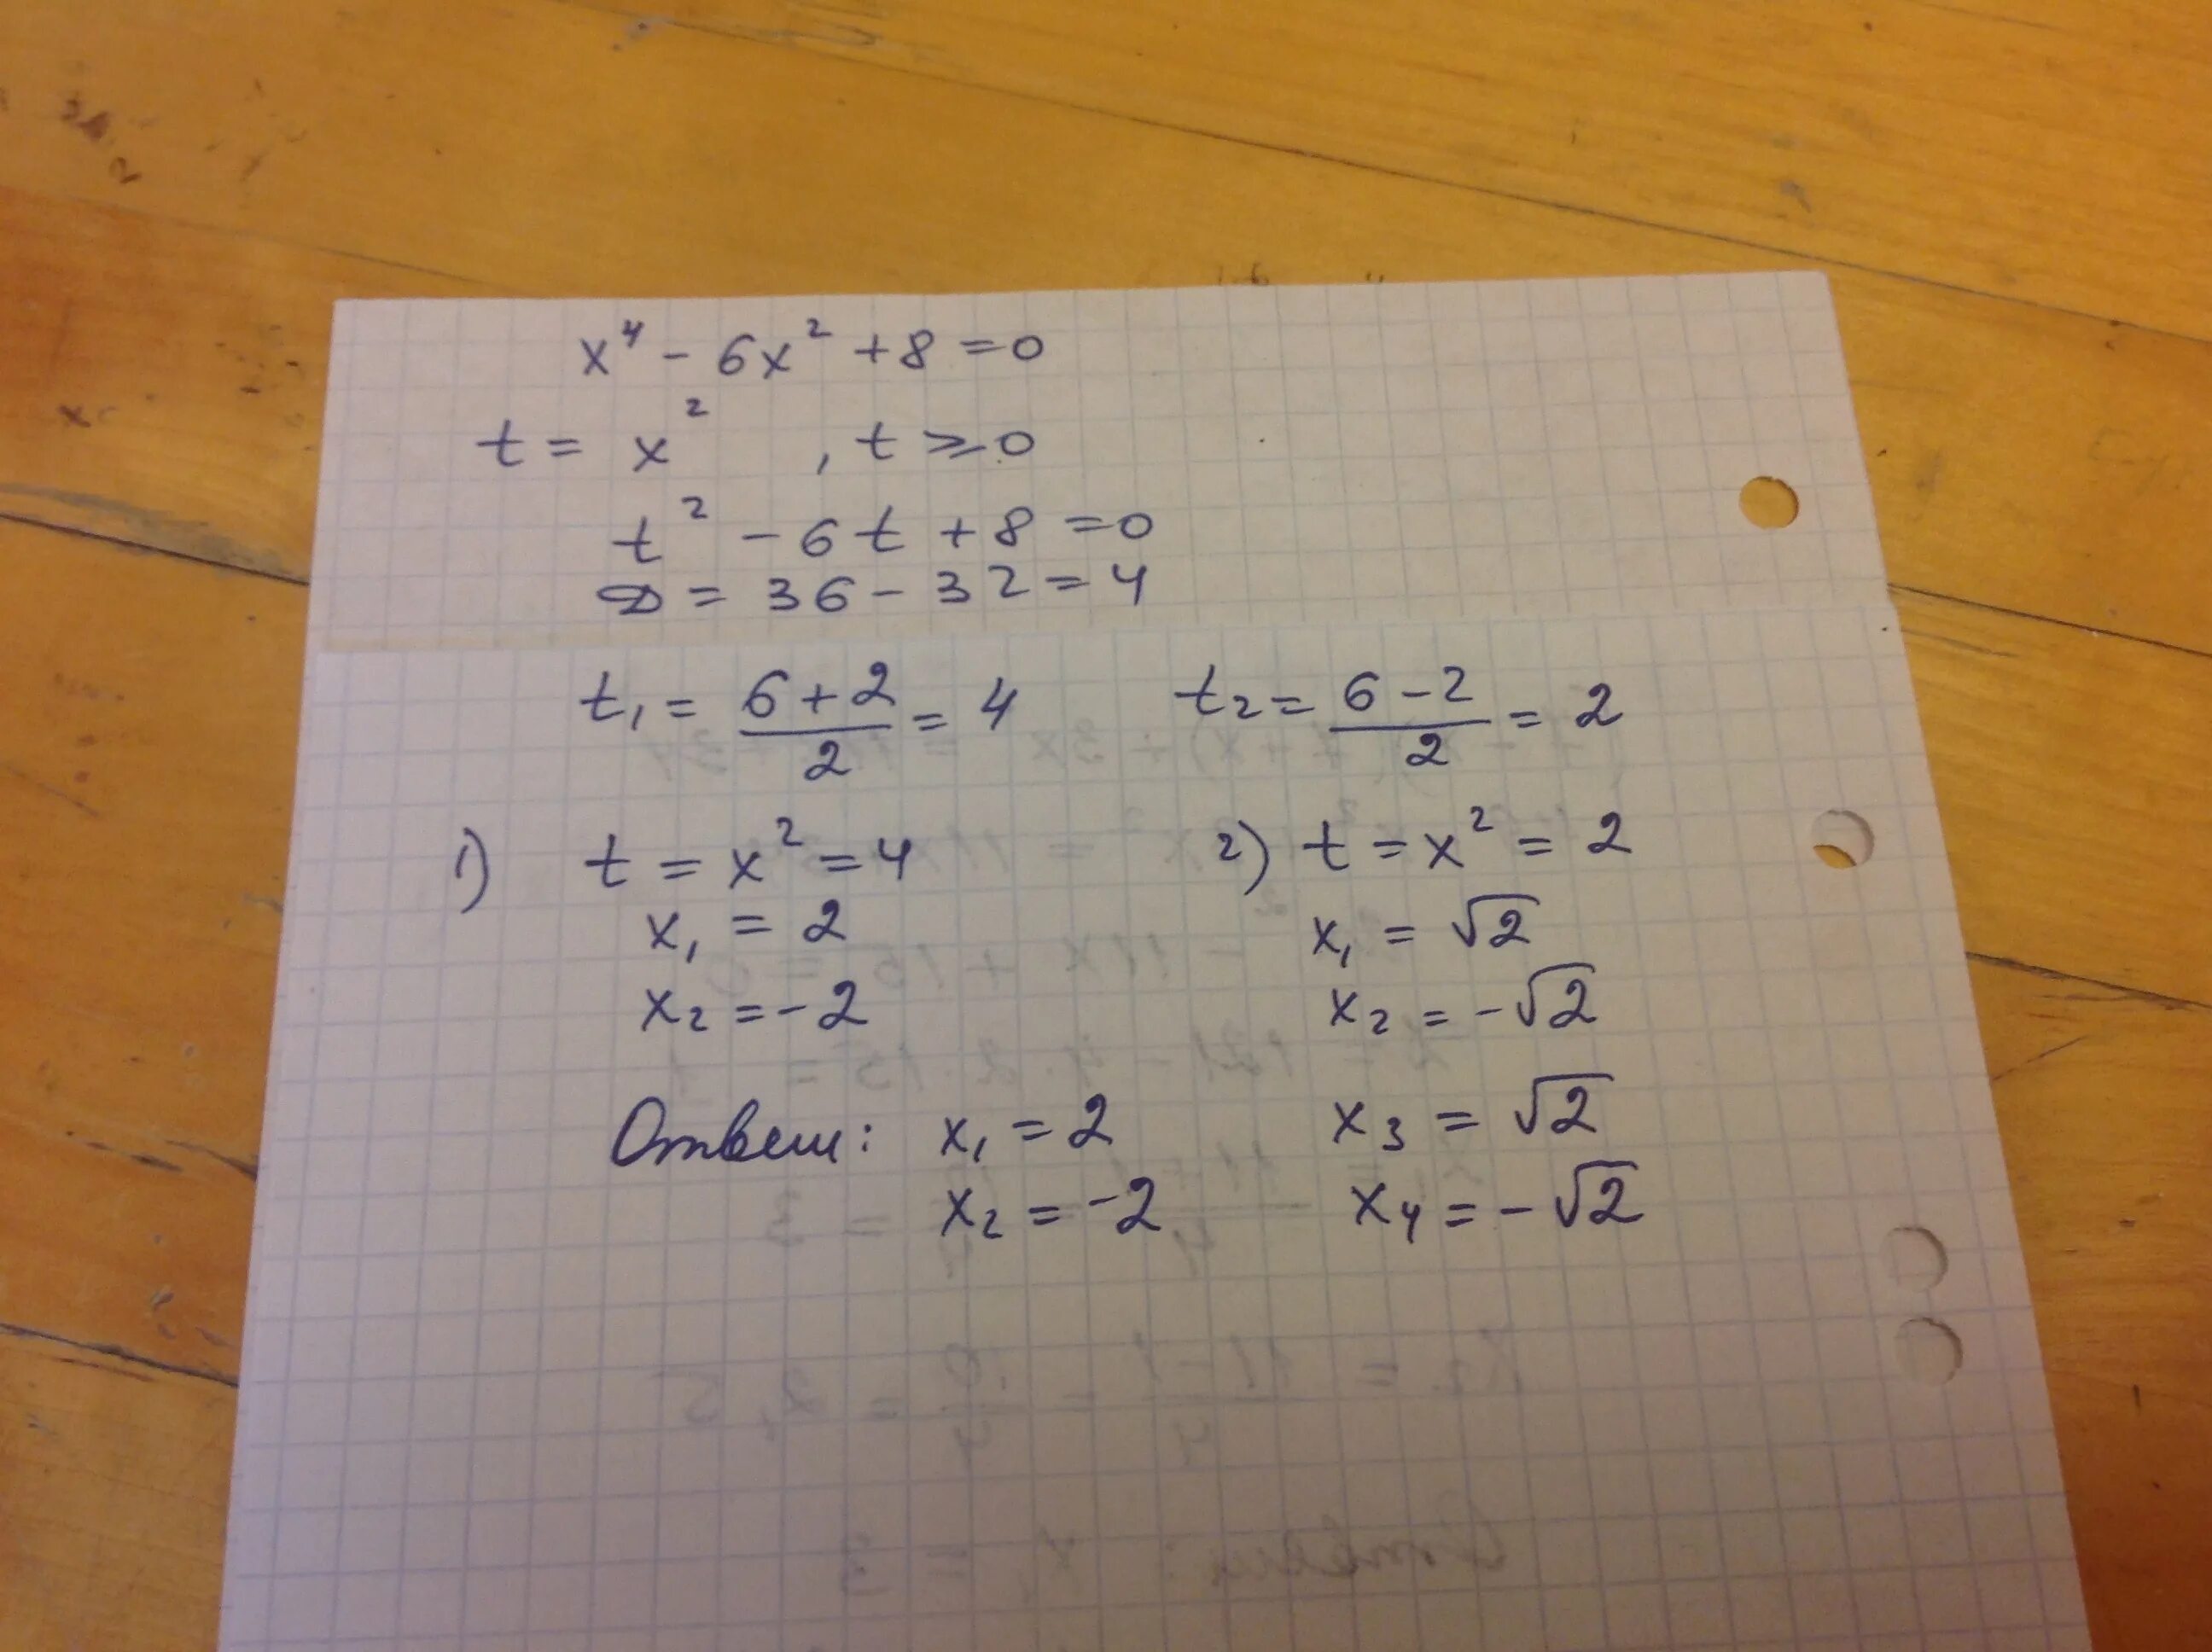 x⁴ - 6x² + 8 = 0
t = x² , t ⩾ 0
t² - 6t + 8 = 0
D = 36 - 32 = 4
t₁ = (6 + 2)/2 = 4 t₂ = (6 - 2)/2 = 2
1) t = x² = 4 2) t = x² = 2
x₁ = 2 x₁ = √2
x₂ = -2 x₂ = -√2
Ответ: x₁ = 2 x₃ = √2
x₂ = -2 x₄ = -√2